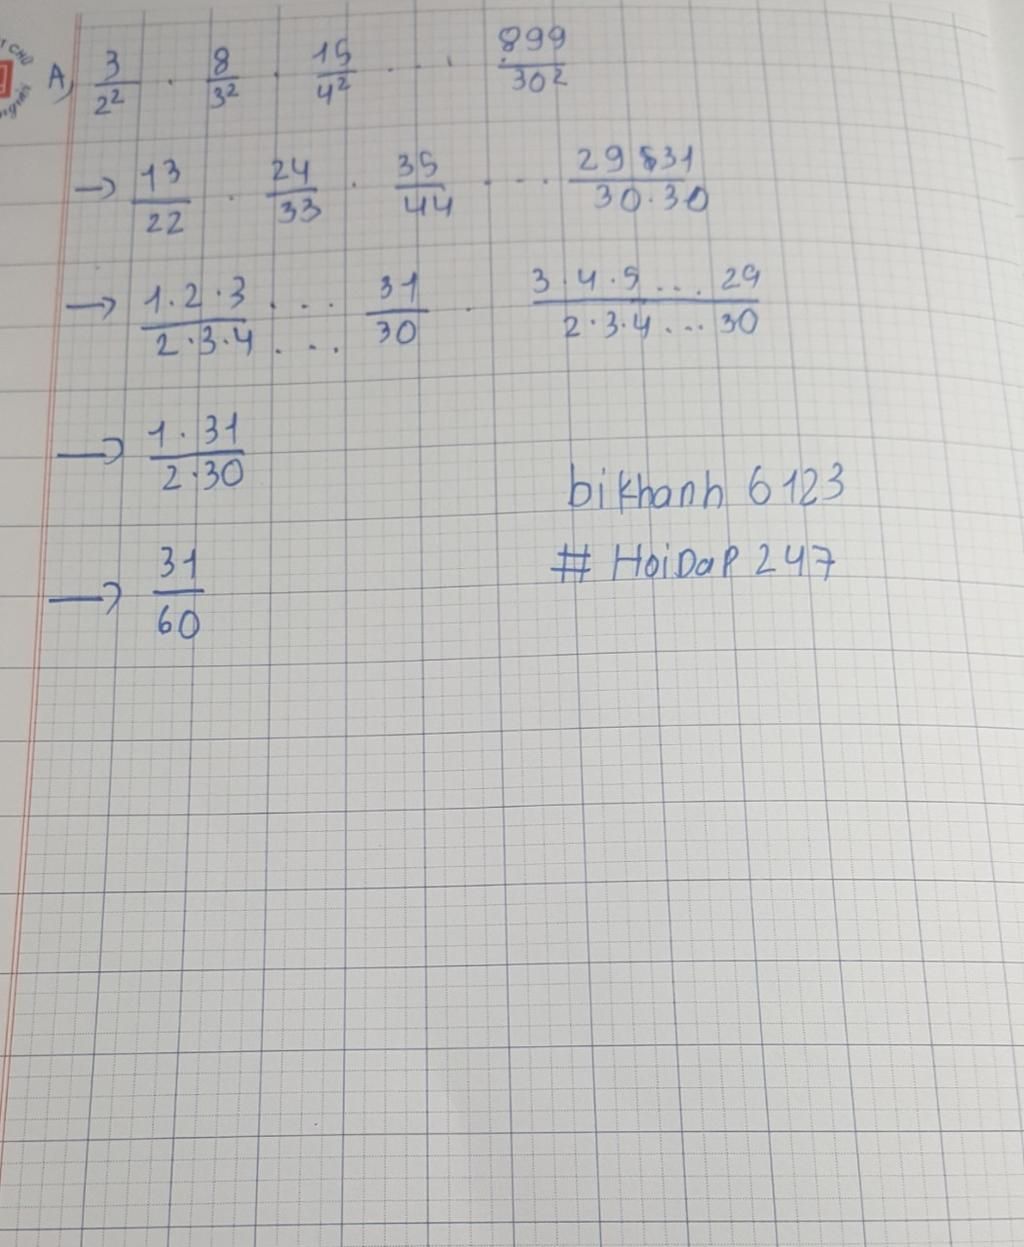 A, 3/2² . 8/3² . 15/4² . . . 899/30²
→ 13/22 . 24/33 . 35/44 . . . 29 31/30.30
→ 1.2.3/2.3.4 ... 31/30 . 3.4.5...29/2.3.4...30
→ 1.31/2.30
bikhanh 6123
→ 31/60
# HoiDaP 247